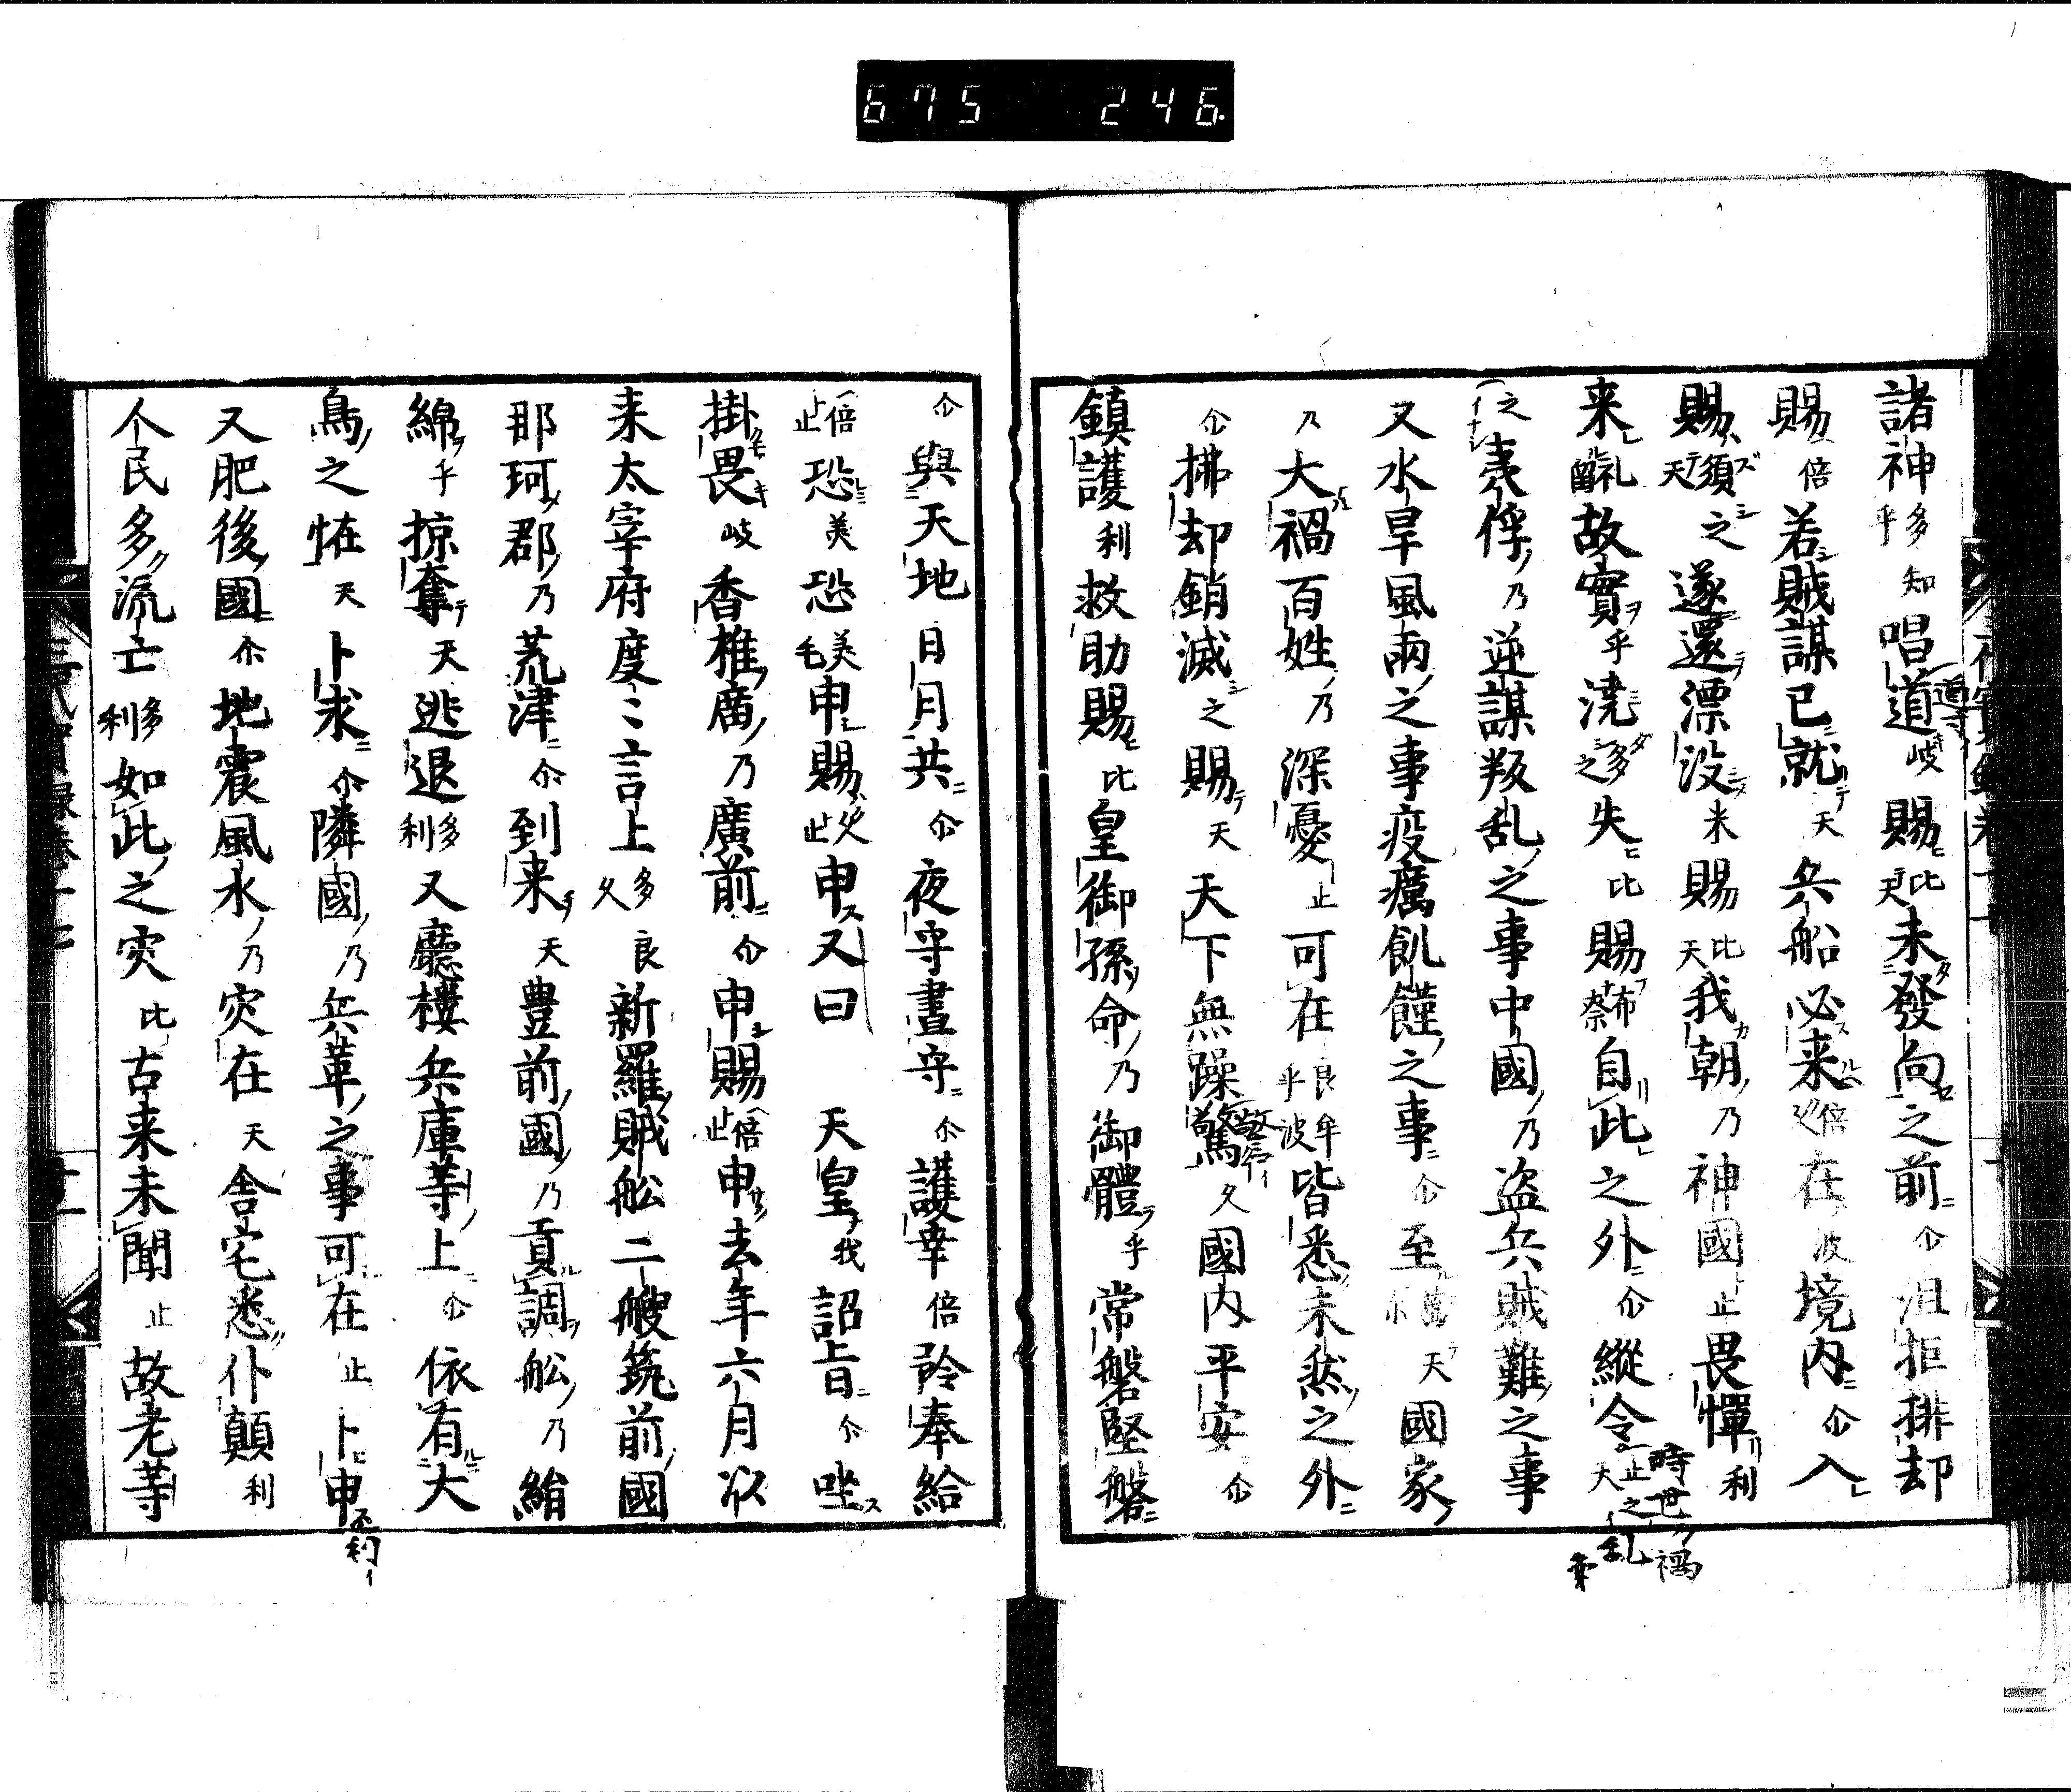 675 246
諸神多乎知唱道岐賜比天未發向之前尒沮拒排却
賜倍若賊謀已就天兵船必来倍久在波境内尒入
賜須天之遂還漂没来賜比天我朝乃神國止畏憚利
来礼留故實乎澆多之失比賜布奈自此之外尒縱令止之天
之夷俘乃逆謀叛乱之事中國乃盗兵賊難之事
又水旱風雨之事疫癘飢饉之事尒至萬尒天國家
乃大禍百姓乃深憂止可在良牟乎波皆悉未然之外
尒拂却銷滅之賜天天下無躁驚久國内平安尒
鎮護利救助賜比皇御孫命乃御體乎常磐堅磐
尒與天地日月共尒夜守晝守尒護幸倍矜奉給
倍止恐美恐美毛申賜久止申又曰 天皇我詔旨尒坐
掛畏岐香椎廣乃廣前尒申賜倍止申去年六月以
来太宰府度〻言上多久良新羅賊舩二艘筑前國
那珂郡乃荒津尒到来天豊前國乃貢調舩乃絹
綿乎掠奪天逃退多利又廳樓兵庫等上尒依有大
鳥之恠天卜求尒隣國乃兵革之事可在止卜申
又肥後國尒地震風水乃灾在天舎宅悉仆顛利
人民多流亡多利如此之灾比古来未聞止故老等
時世禍
乱